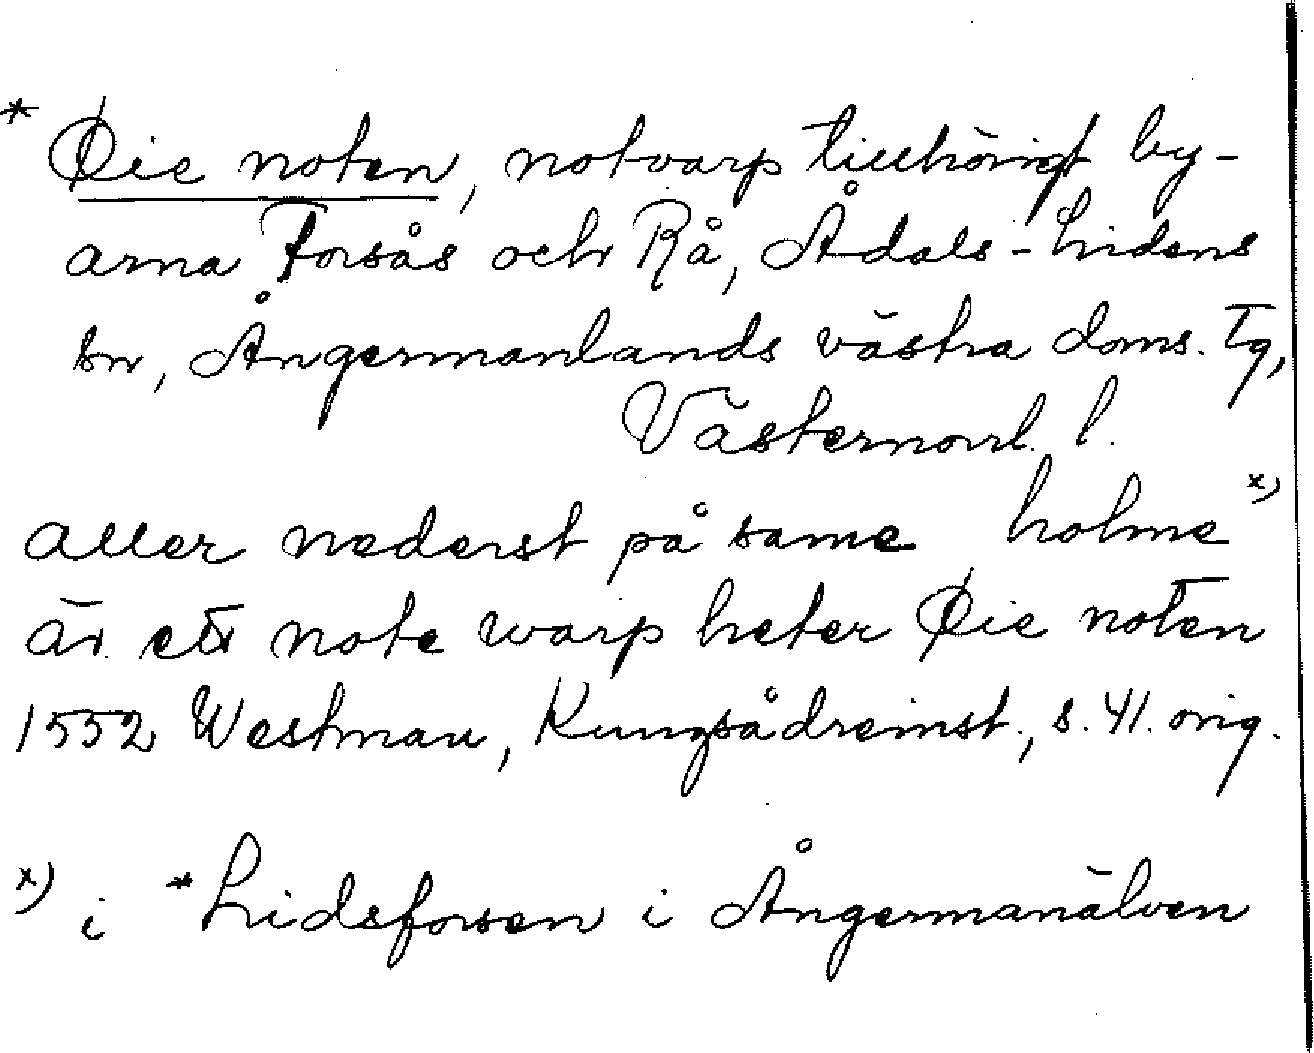 * Øie noten, notvarp tillhörigt by-
arna Forsås och Rå, Ådals-Lidens
sn, Ångermanlands västra doms. Tg,
Västernorrl. l.
aller nederst på same holme x)
är ett note warp heter Øie noten
1552 Westman, Kungsådreinst., s. 41. orig.
x) i *Lidsforsen i Ångermanälven